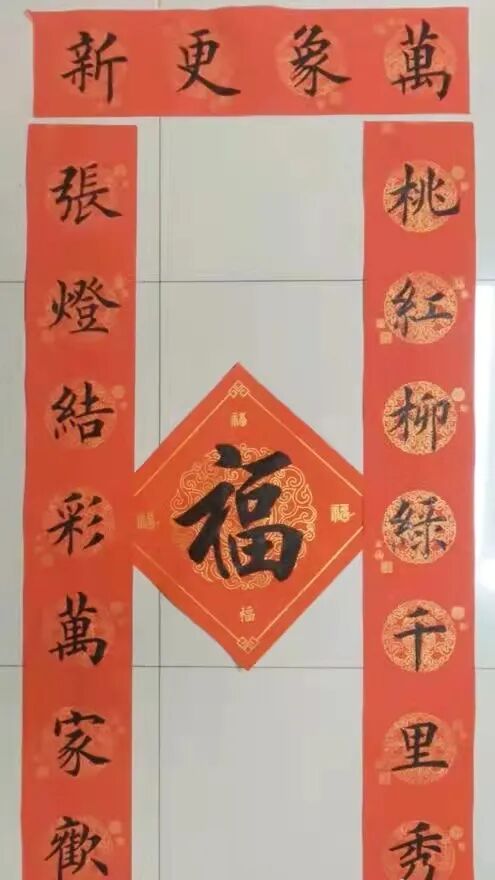 萬象更新
桃紅柳綠千里秀
張燈結彩萬家歡
福
福
福
福
福